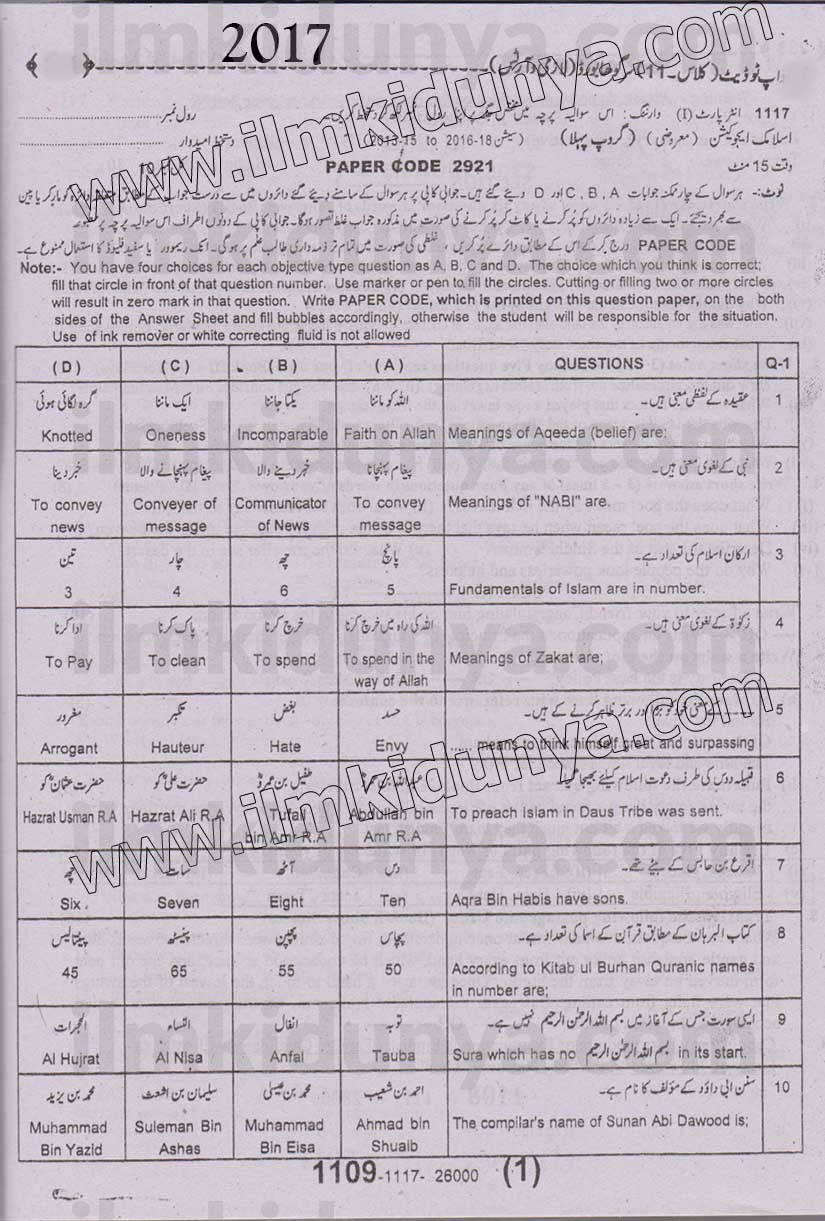 2017
اپ ٹو ڈیٹ (کلاس ۔11) سرگودھا بورڈ (لازمی / آرٹس)
1117 انٹر پارٹ (I) وارننگ : اس سوالیہ پرچہ میں رول نمبر
اسلامک ایجوکیشن (معروضی) (گروپ پہلا) (سیشن 2013-15 to 2016-18) دستخط امیدوار
وقت 15 منٹ PAPER CODE 2921
نوٹ:- ہر سوال کے چار ممکنہ جوابات C , B , A اور D دیئے گئے ہیں۔ جوابی کاپی پر ہر سوال کے سامنے دیئے گئے دائروں میں سے درست جواب کے مطابق متعلقہ دائرہ کو مارکر یا پین
سے بھر دیجئے۔ ایک سے زیادہ دائروں کو پُر کرنے یا کاٹ کر پُر کرنے کی صورت میں مذکورہ جواب غلط تصور ہوگا۔ جوابی کاپی کے دونوں اطراف اس سوالیہ پرچہ پر مطبوعہ
PAPER CODE درج کر کے اس کے مطابق دائرے پُر کریں ، غلطی کی صورت میں تمام تر ذمہ داری طالب علم پر ہوگی۔ انک ریموور یا سفید فلیوڈ کا استعمال ممنوع ہے۔
Note:- You have four choices for each objective type question as A, B, C and D. The choice which you think is correct;
fill that circle in front of that question number. Use marker or pen to fill the circles. Cutting or filling two or more circles
will result in zero mark in that question. Write PAPER CODE, which is printed on this question paper, on the both
sides of the Answer Sheet and fill bubbles accordingly, otherwise the student will be responsible for the situation.
Use of ink remover or white correcting fluid is not allowed
(D) (C) (B) (A) QUESTIONS Q-1
گرہ لگائی ہوئی ایک ماننا یکتا جاننا اللہ کو ماننا عقیدہ کے لفظی معنی ہیں۔ 1
Knotted Oneness Incomparable Faith on Allah Meanings of Aqeeda (belief) are:
خبر دینا پیغام پہنچانے والا خبر دینے والا پیغام پہنچانا نبی کے لغوی معنی ہیں۔ 2
To convey news Conveyer of message Communicator of News To convey message Meanings of "NABI" are.
تین چار چھ پانچ ارکان اسلام کی تعداد ہے۔ 3
3 4 6 5 Fundamentals of Islam are in number.
ادا کرنا پاک کرنا خرچ کرنا اللہ کی راہ میں خرچ کرنا زکوٰۃ کے لغوی معنی ہیں۔ 4
To Pay To clean To spend To spend in the way of Allah Meanings of Zakat are;
مغرور تکبر بغض حسد کے معنی خود کو بڑا اور برتر ظاہر کرنے کے ہیں۔ 5
Arrogant Hauteur Hate Envy ...... means to think himself great and surpassing
حضرت عثمانؓ کو حضرت علیؓ کو طفیل بن عمروؓ عبداللہ بن عمروؓ قبیلہ دوس کی طرف دعوت اسلام کیلئے بھیجا گیا۔ 6
Hazrat Usman R.A Hazrat Ali R.A Tufail bin Amr R.A Abdullah bin Amr R.A To preach Islam in Daus Tribe was sent.
چھ سات آٹھ دس اقرع بن حابس کے بیٹے تھے۔ 7
Six Seven Eight Ten Aqra Bin Habis have sons.
پینتالیس پینسٹھ پچپن پچاس کتاب البرہان کے مطابق قرآن کے اسما کی تعداد ہے۔ 8
45 65 55 50 According to Kitab ul Burhan Quranic names in number are;
الحجرات النساء انفال توبہ ایسی سورت جس کے آغاز میں بسم اللہ الرحمٰن الرحیم نہیں ہے۔ 9
Al Hujrat Al Nisa Anfal Tauba Sura which has no بسم اللہ الرحمٰن الرحیم in its start.
محمد بن یزید سلیمان بن اشعث محمد بن عیسیٰ احمد بن شعیب سنن ابی داؤد کے مؤلف کا نام ہے۔ 10
Muhammad Bin Yazid Suleman Bin Ashas Muhammad Bin Eisa Ahmad bin Shuaib The compilar's name of Sunan Abi Dawood is;
1109-1117- 26000 (1)
www.ilmkidunya.com
www.ilmkidunya.com
ilmkidunya.com